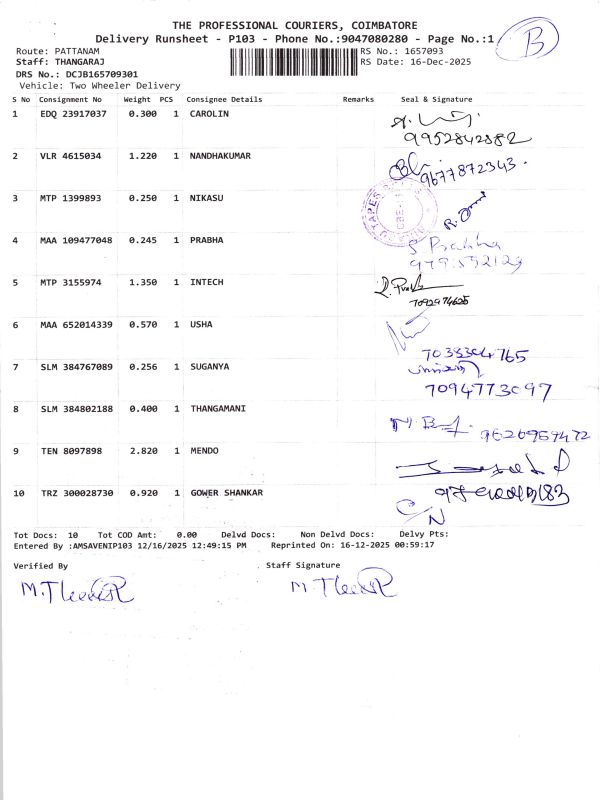 THE PROFESSIONAL COURIERS, COIMBATORE
Delivery Runsheet - P103 - Phone No.:9047080280 - Page No.:1
B
Route: PATTANAM RS No.: 1657093
Staff: THANGARAJ RS Date: 16-Dec-2025
DRS No.: DCJB165709301
Vehicle: Two Wheeler Delivery
S No Consignment No Weight PCS Consignee Details Remarks Seal & Signature
1 EDQ 23917037 0.300 1 CAROLIN
9952842882
2 VLR 4615034 1.220 1 NANDHAKUMAR
9677872343.
3 MTP 1399893 0.250 1 NIKASU
4 MAA 109477048 0.245 1 PRABHA S. Prabha
5 MTP 3155974 1.350 1 INTECH
7092974625
6 MAA 652014339 0.570 1 USHA
7038304765
7 SLM 384767089 0.256 1 SUGANYA
7094773097
8 SLM 384802188 0.400 1 THANGAMANI
9626959472
9 TEN 8097898 2.820 1 MENDO
10 TRZ 300028730 0.920 1 GOWER SHANKAR
C/N
Tot Docs: 10 Tot COD Amt: 0.00 Delvd Docs: Non Delvd Docs: Delvy Pts:
Entered By :AMSAVENIP103 12/16/2025 12:49:15 PM Reprinted On: 16-12-2025 00:59:17
Verified By Staff Signature